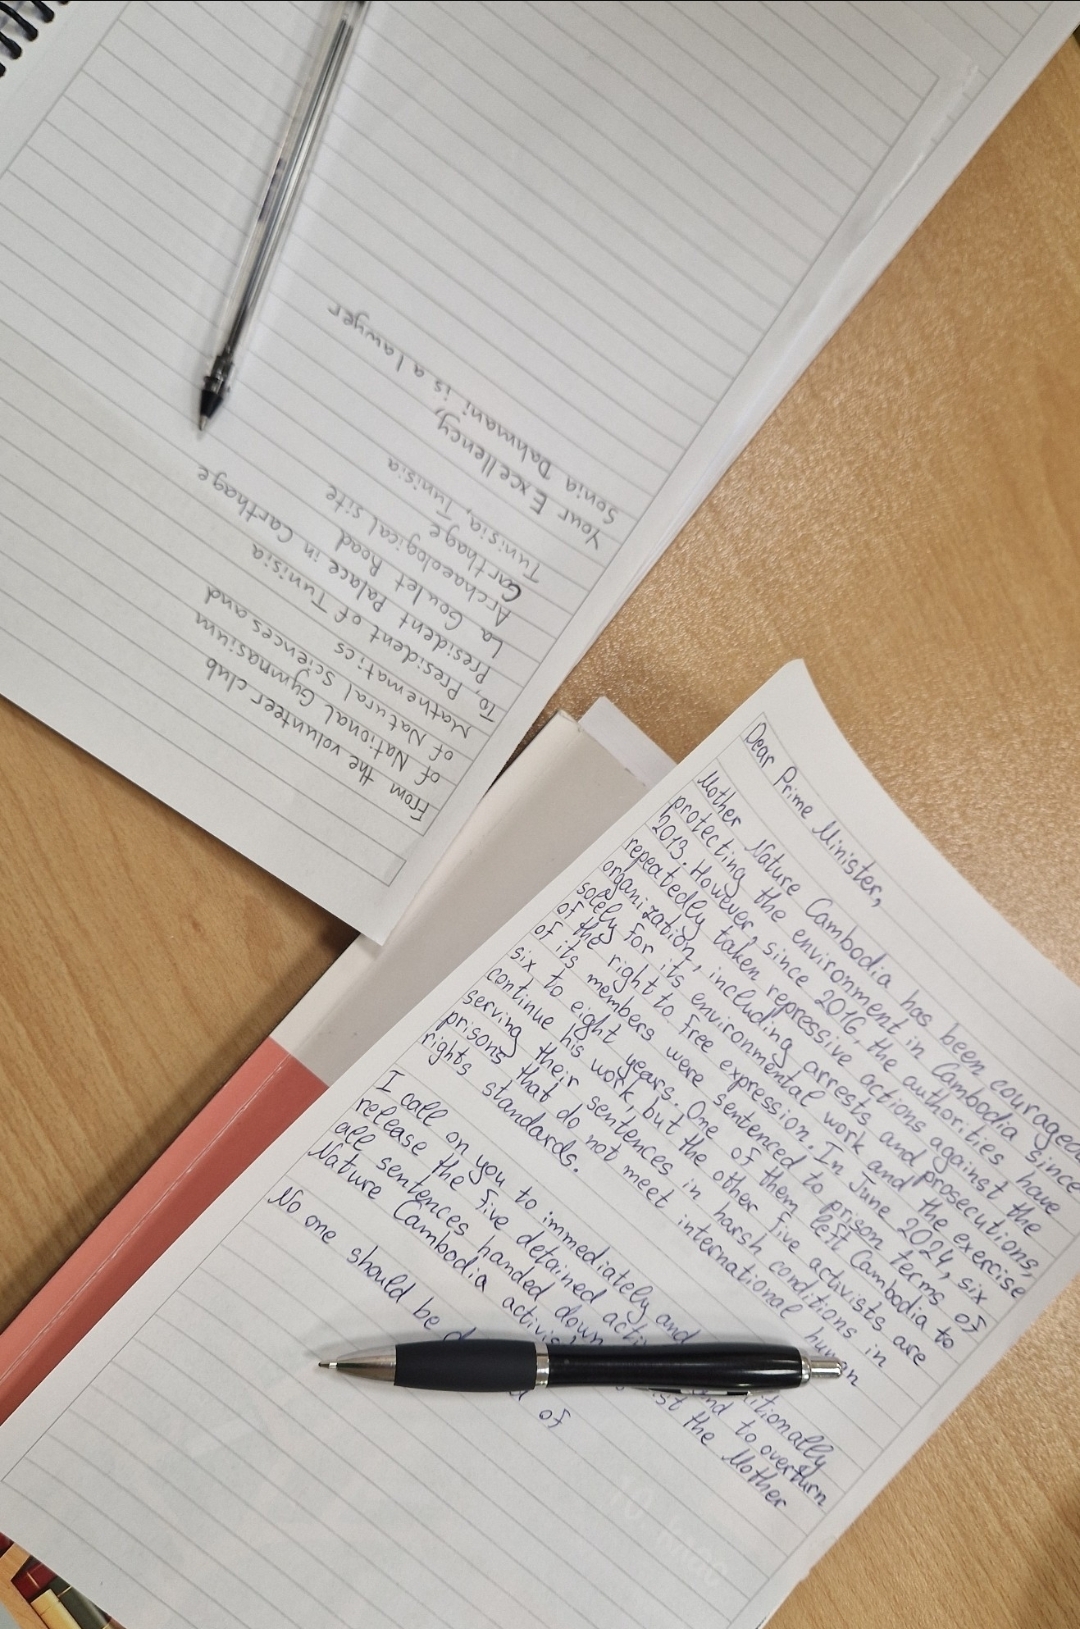 From the volunteer club
of National Gymnasium
of Natural sciences and
Mathematics
To, President of Tunisia
President Palace in Carthage
La Goulet Road
Archaeological site
Carthage
Tunisia, Tunisia
Your Excellency,
Sonia Dahmani is a lawyer
Dear Prime Minister,
Mother Nature Cambodia has been courageou
protecting the environment in Cambodia since
2013. However, since 2016, the authorities have
repeatedly taken repressive actions against the
organization, including arrests and prosecutions,
solely for its environmental work and the exercise
of the right to free expression. In June 2024, six
of its members were sentenced to prison terms of
six to eight years. One of them left Cambodia to
continue his work, but the other five activists are
serving their sentences in harsh conditions in
prisons that do not meet international human
rights standards.
I call on you to immediately and itionally
release the five detained acti and to overturn
all sentences handed down the Mother
Nature Cambodia activis
No one should be of